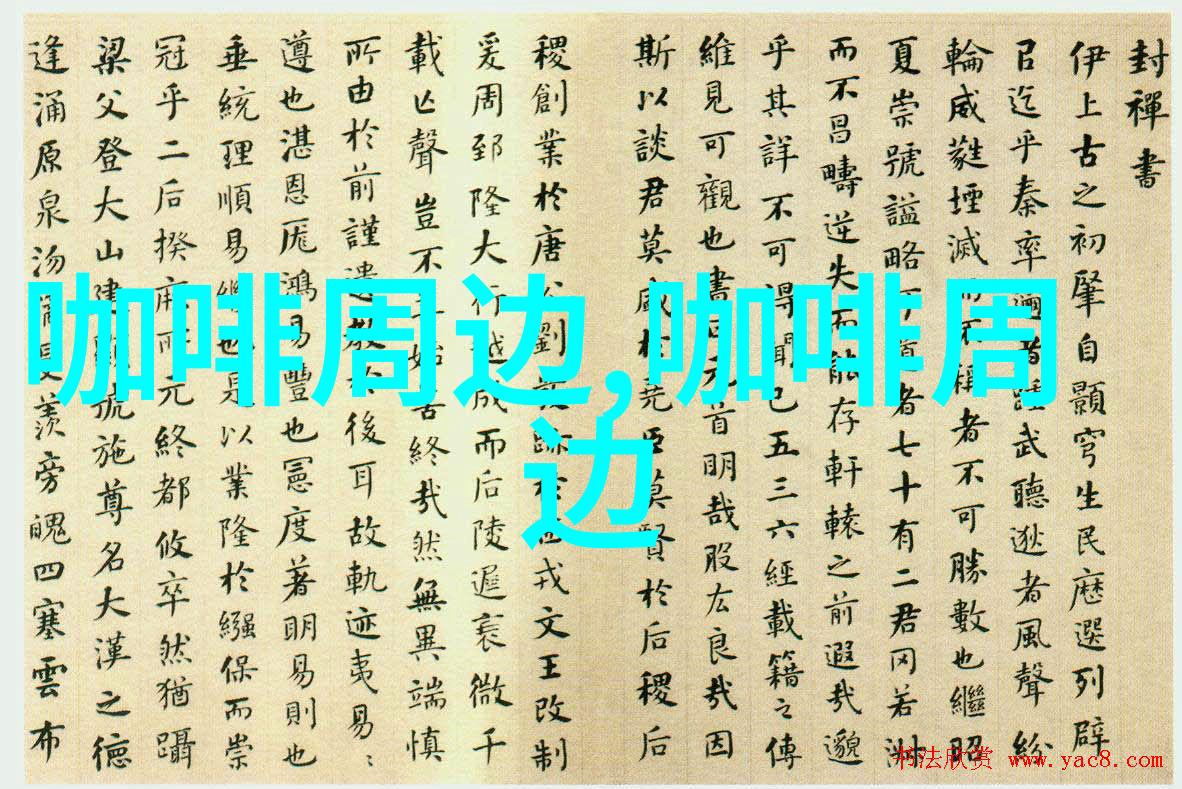 封禪書
伊上古之初肇自顥穹生民厯選列辟
㠯迄乎秦率邇者踵武聽逖者風聲紛
輪威蕤堙滅而不稱者不可勝數也繼昭
夏崇號謚略可道者七十有二君罔若淑
而不昌疇逆失而能存軒轅之前遐哉邈
乎其詳不可得聞已五三六經載籍之傳
維見可觀也書曰元首明哉股厷良哉因
斯以談君莫盛於堯臣莫賢於后稷后
稷創業於唐公劉發跡於西戎文王改制
爰周郅隆大行越成而后陵遲衰微千
載亡聲豈不善始善終哉然無異端慎
所由於前謹遺教於後耳故軌迹夷易〻
遵也湛恩厖鴻易豐也憲度著明易則也
垂統理順易繼也是以業隆於繈保而崇
冠乎二后揆厥所元終都攸卒然猶躡
梁父登大山建顯號施尊名大漢之德
逢涌原泉沕潏曼羨旁魄四塞雲布
咖啡周边,咖啡周
边
书法欣赏 www.yac8.com